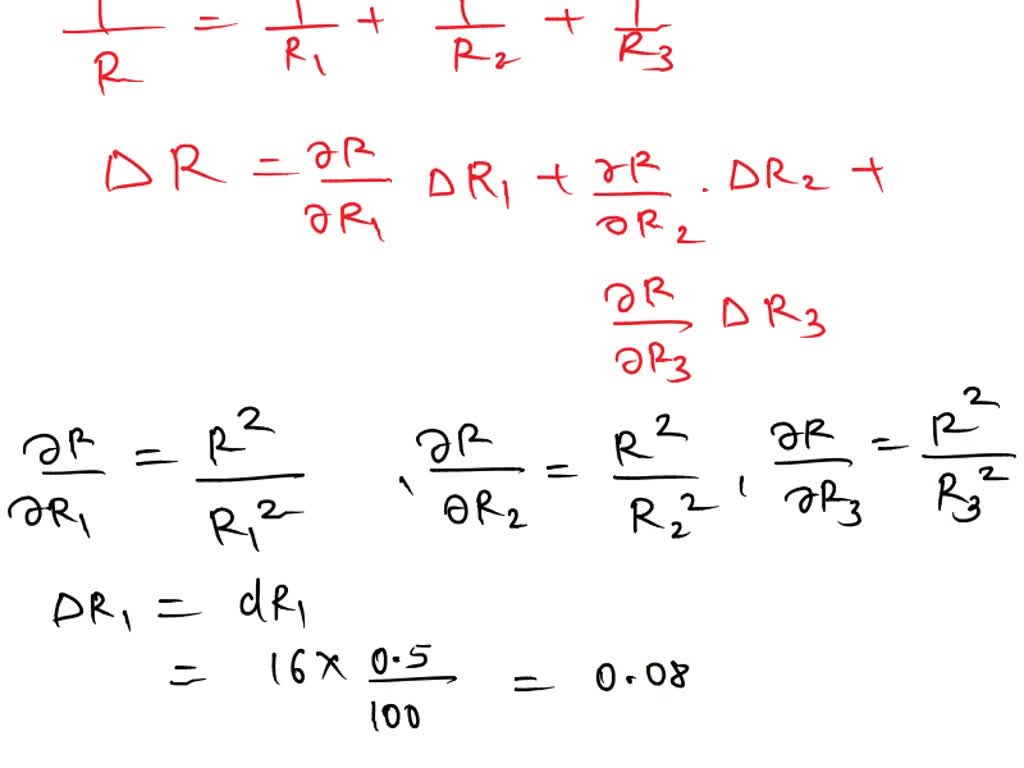 1/R = 1/R₁ + 1/R₂ + 1/R₃
ΔR = ∂R/∂R₁ ΔR₁ + ∂R/∂R₂ . ΔR₂ +
∂R/∂R₃ ΔR₃
∂R/∂R₁ = R²/R₁² , ∂R/∂R₂ = R²/R₂² , ∂R/∂R₃ = R²/R₃²
ΔR₁ = dR₁
= 16 × 0.5/100 = 0.08